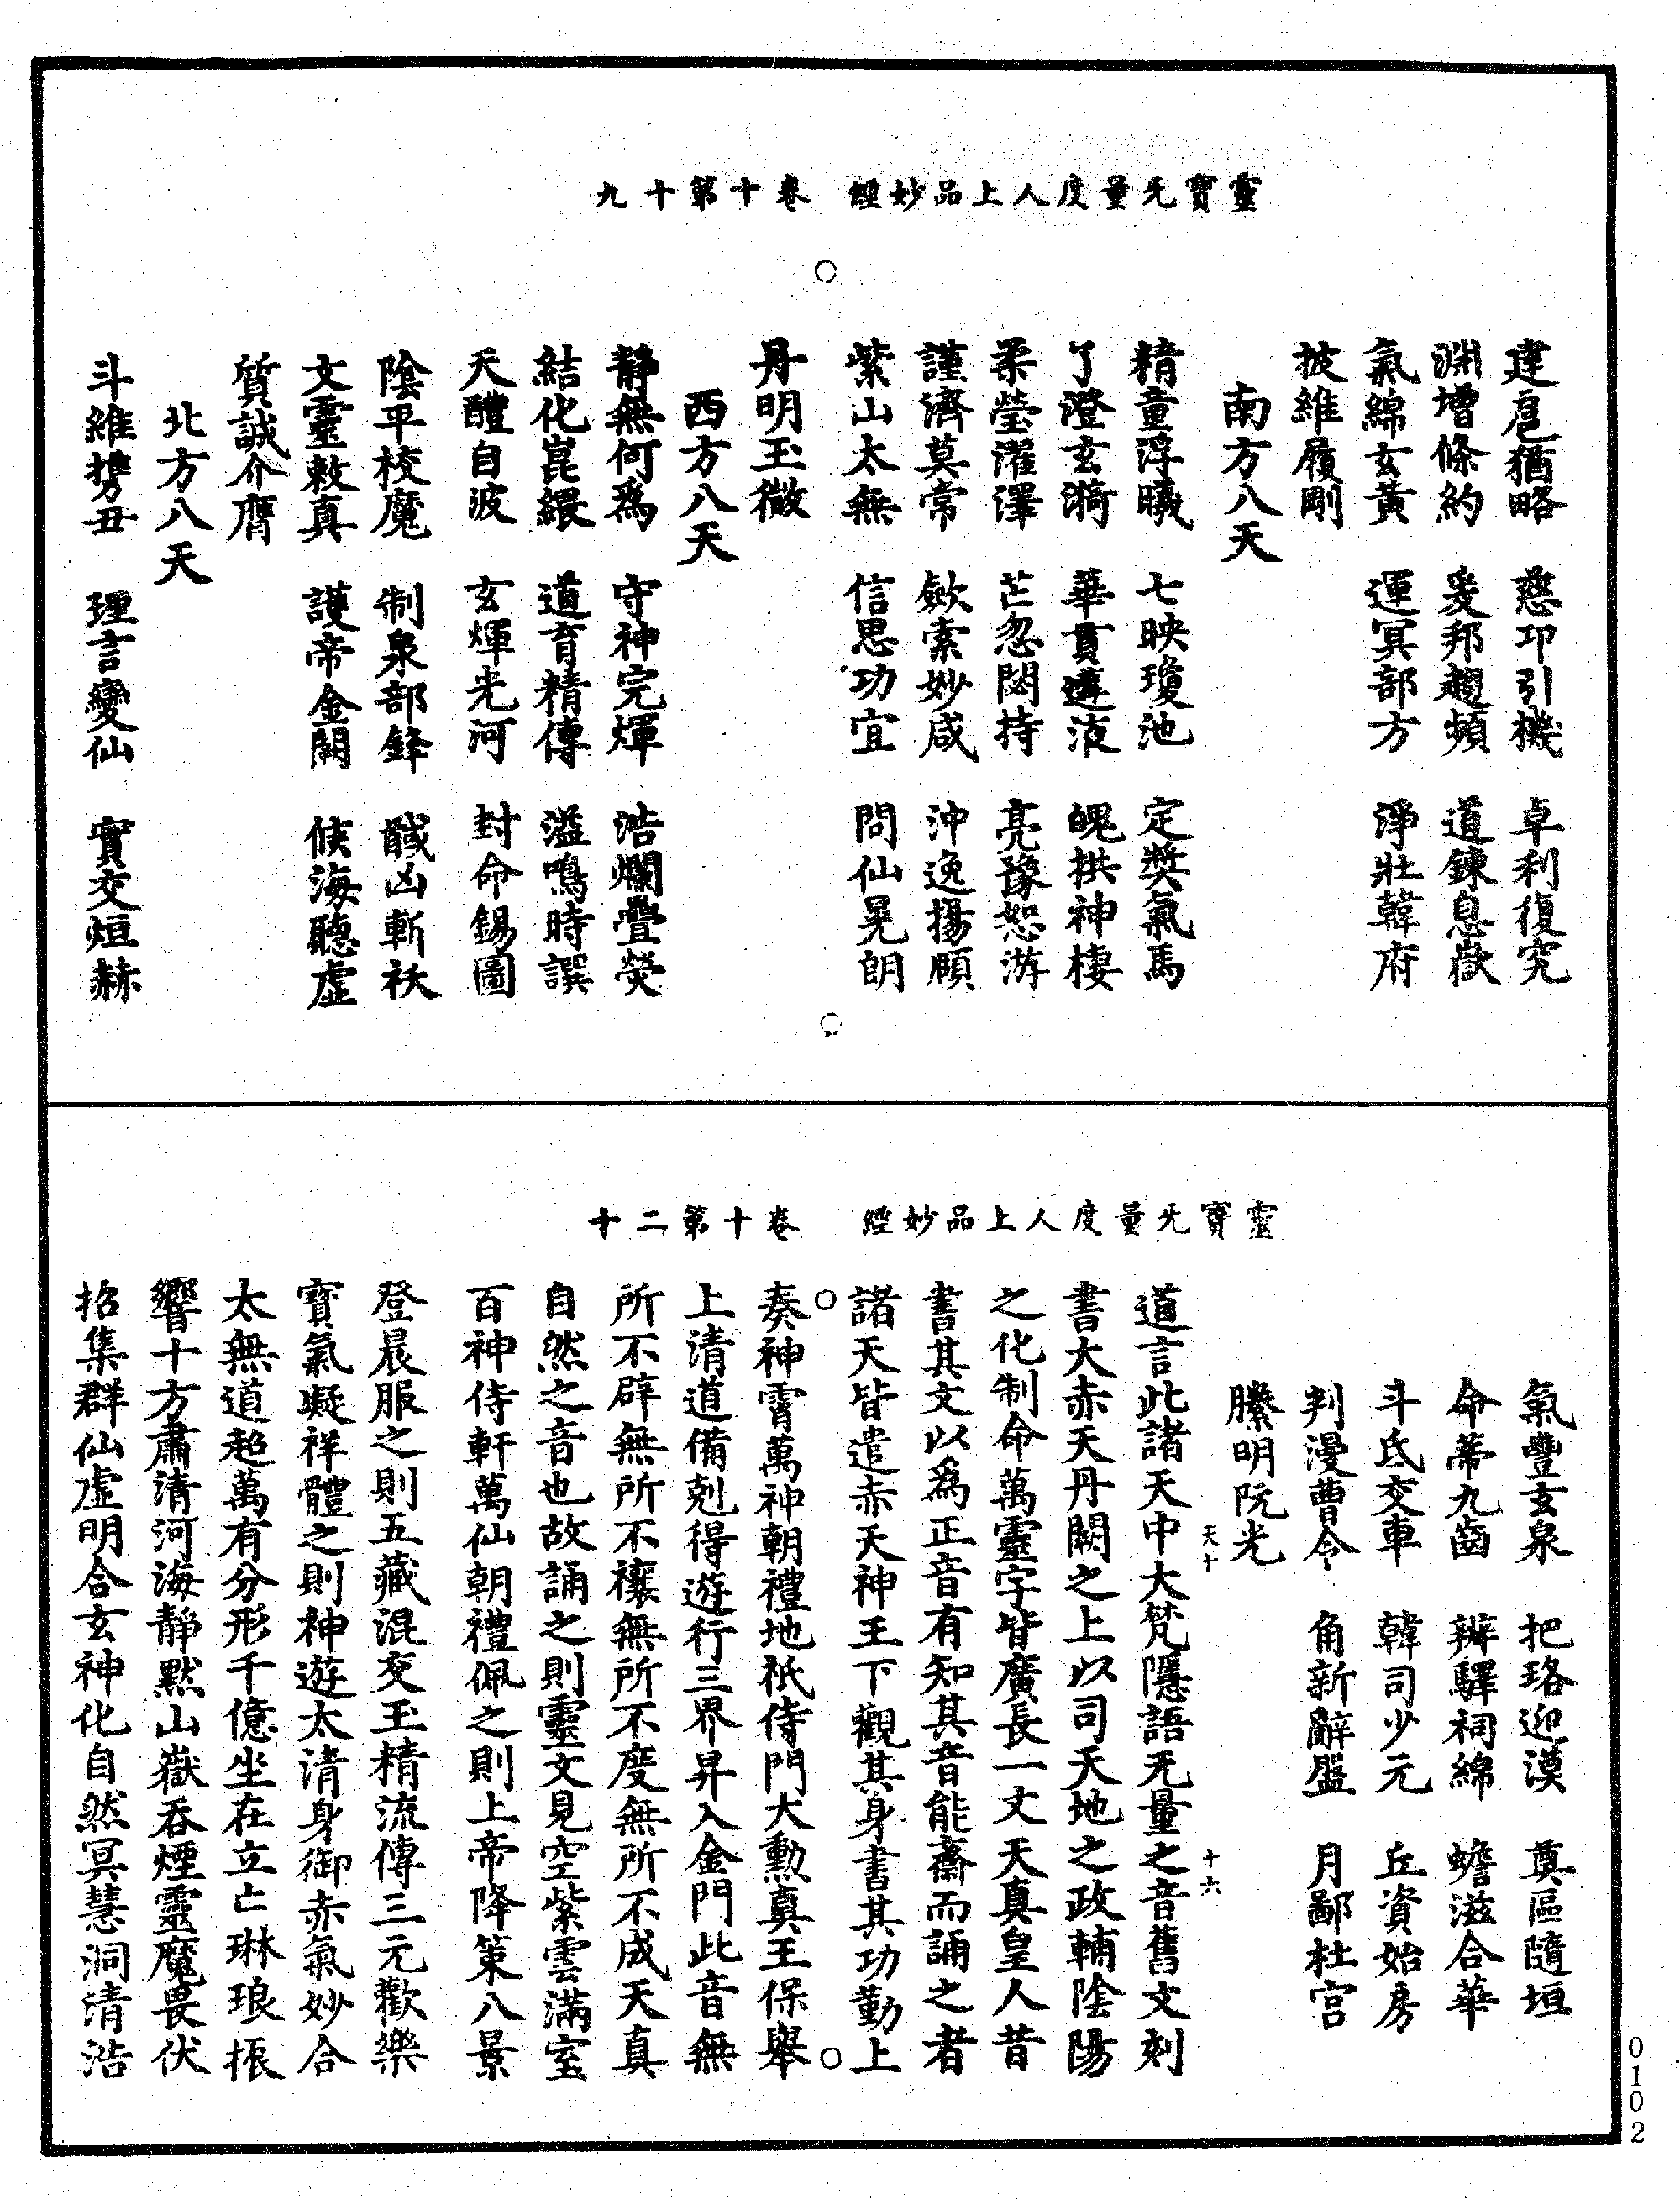 靈寶无量度人上品妙經　卷十第十九
建扈猶略　慈卭引機　卓利復究
淵增條約　爰邦趨頻　道鍊息嶽
氣綿玄黃　運冥部方　淨壯韓府
披維履剛
南方八天
精童浮曦　七映瓊池　定獎氣馬
了澄玄漪　華貫遘液　魄拱神棲
柔瑩濯澤　芒忽閎持　亮豫恕游
謹濟莫常　歛索妙咸　沖逸揚願
紫山太無　信思功宜　問仙晃朗
丹明玉微
西方八天
靜無何為　守神完煇　浩爛疊熒
結化崑緩　道育精傳　溢鳴時譔
天醴自波　玄煇光河　封命錫圖
陰平校魔　制泉部鋒　馘凶斬袄
文靈敕真　護帝金闕　候海聽虛
質誠介膺
北方八天
斗維攜丑　理言變仙　實交烜赫
靈寶无量度人上品妙經　卷十第二十
氣豐玄泉　把珞迎漠　奠區隨垣
命蒂九齒　辯驛祠綿　蟾滋合華
斗氐交車　韓司少元　丘資始房
判漫曹令　角新辭盤　月鄙杜宫
滕明阮光
天十　十六
道言此諸天中大梵隱語无量之音舊文刻
書大赤天丹闕之上以司天地之政輔陰陽
之化制命萬靈字皆廣長一丈天真皇人昔
書其文以為正音有知其音能齋而誦之者
諸天皆遣赤天神王下觀其身書其功勤上
奏神霄萬神朝禮地祇侍門大勳真王保舉
上清道備剋得遊行三界昇入金門此音無
所不辟無所不禳無所不度無所不成天真
自然之音也故誦之則靈文見空紫雲滿室
百神侍軒萬仙朝禮佩之則上帝降策八景
登晨服之則五藏混交玉精流傳三元歡樂
寶氣凝祥體之則神遊太清身御赤氣妙合
太無道超萬有分形千億坐在立亡琳琅振
響十方肅清河海靜默山嶽吞煙靈魔畏伏
招集群仙虛明合玄神化自然冥慧洞清浩
0102